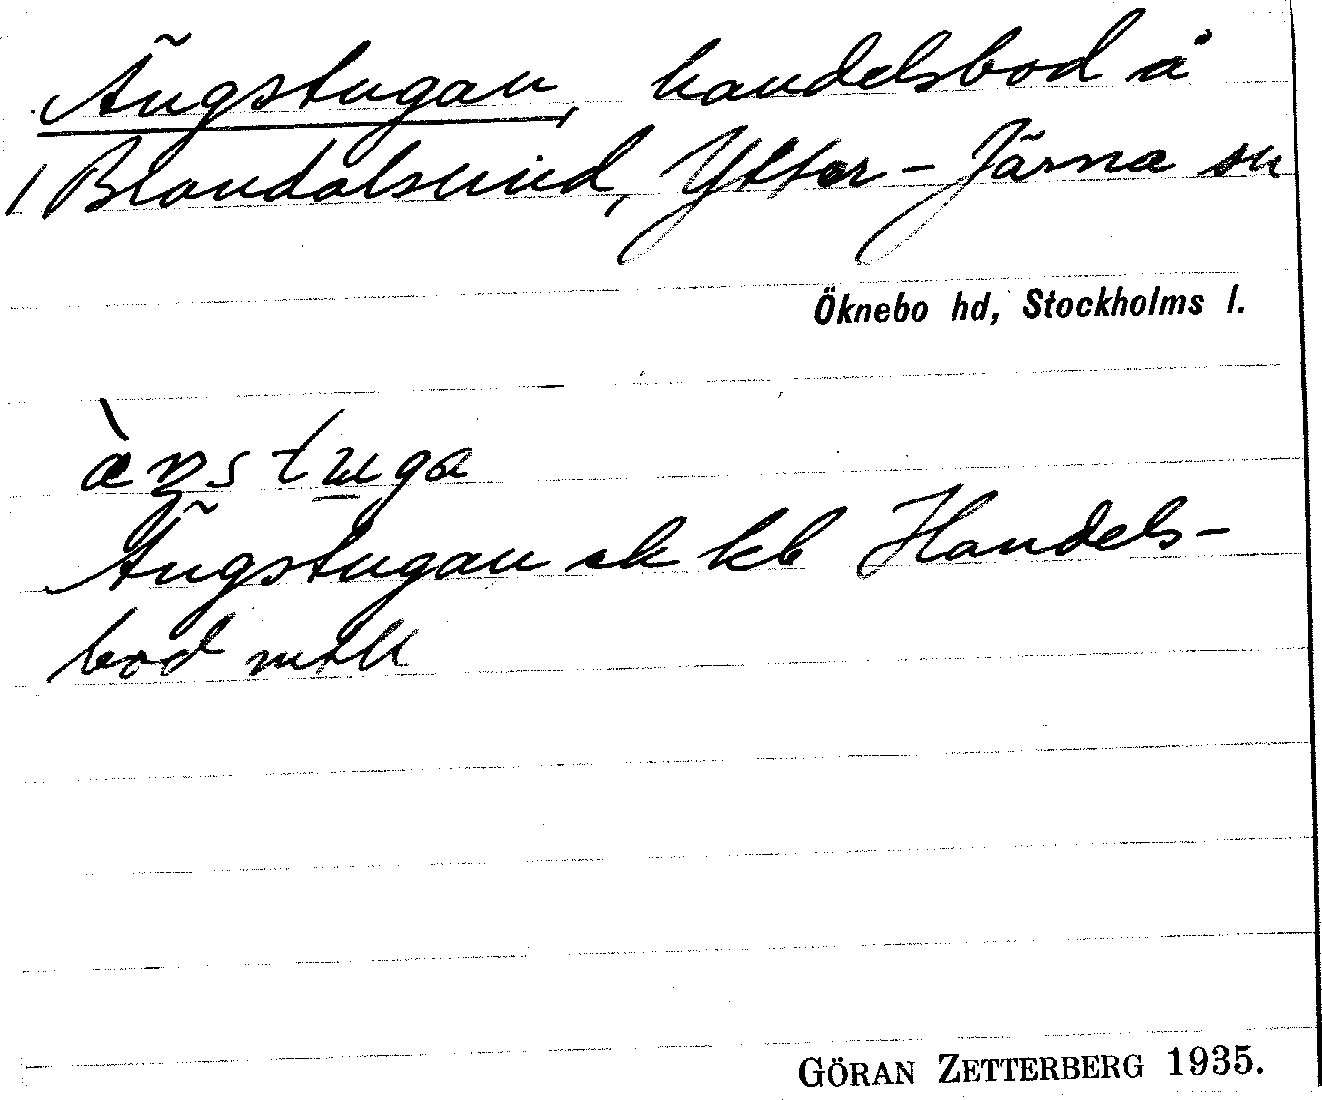 Ängstugan, handelsbod å
/ Blandalsund, Ytter-Järna sn
Öknebo hd, Stockholms l.
æ̀ŋstuga
Ängstugan ek kb Handels-
bod mtll
GÖRAN ZETTERBERG 1935.